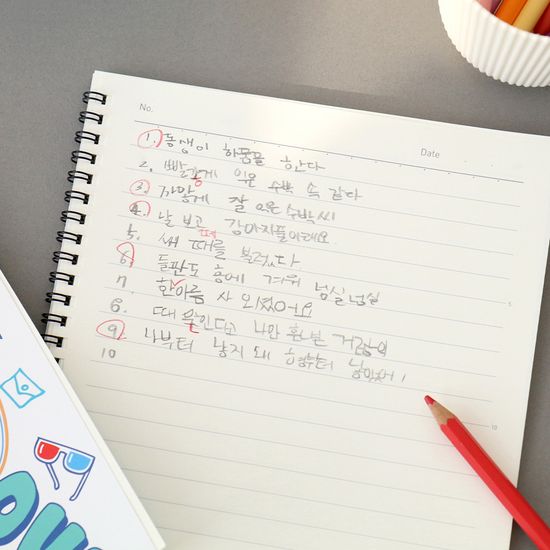 No.
Date
1. 동생이 하품을 한다
2. 빨갛게 익은 수박 속 같다
3. 까맣게 잘 익은 수박씨
4. 날 보고 강아지풀 이래요
5. 떼를
6. 들판도 흥에 겨워 넘실넘실
7. 한아름 사 오셨어요
8. 때 나만 혼난 거
9. 나부터 낳지 왜 형부터 낳았어!
10
5
10